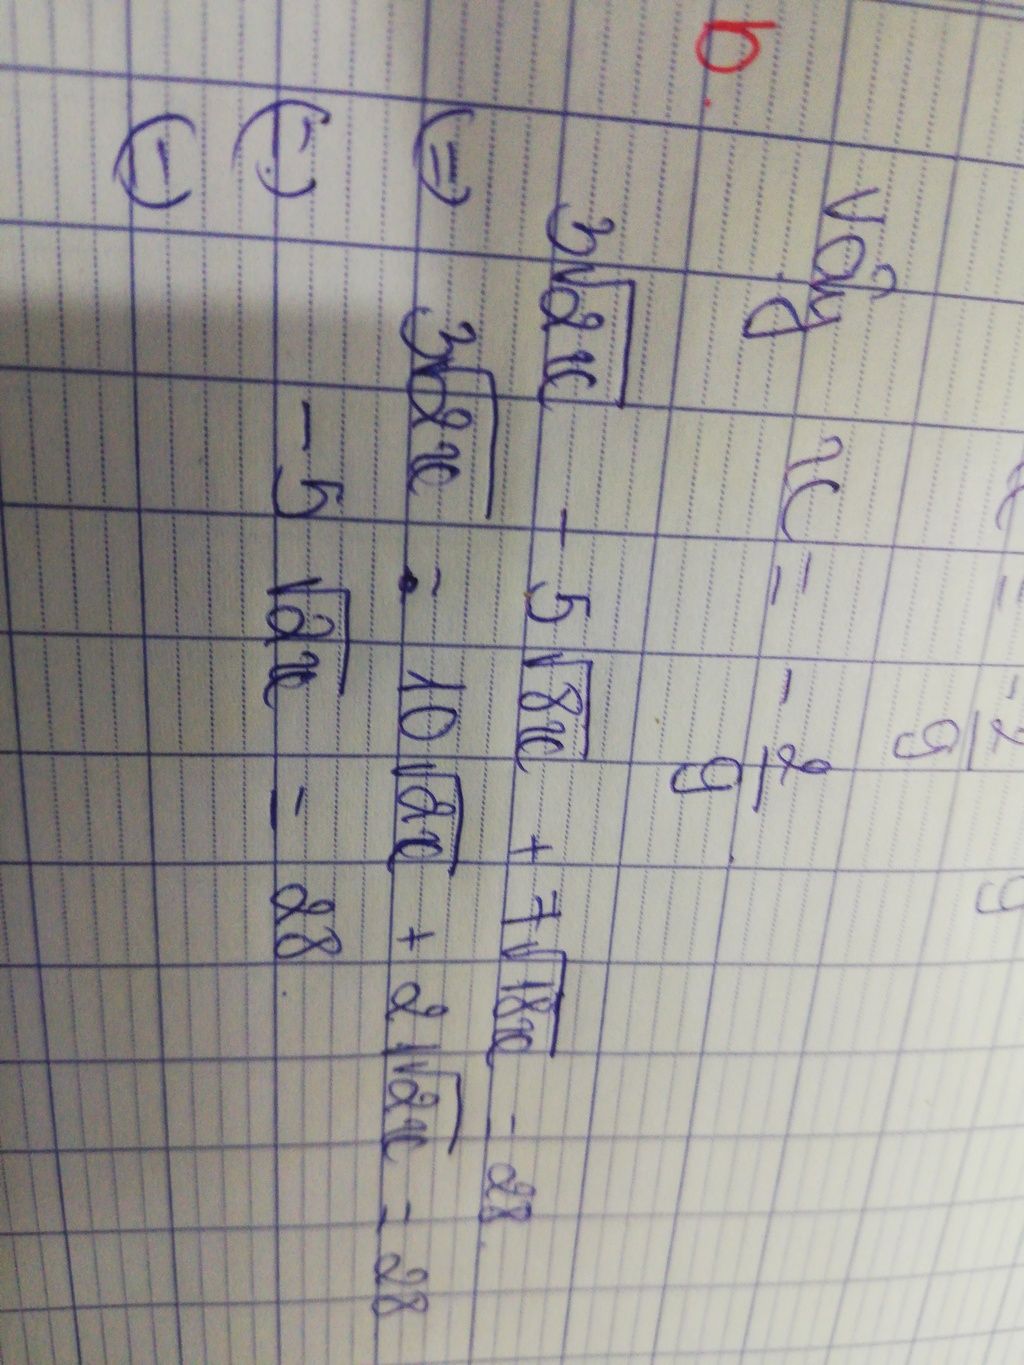 x = -2/9 9
Vậy x = -2/9
b.
3√2x - 5√8x + 7√18x = 28.
(=) 3√2x - 10√2x + 21√2x = 28
(=) -5√2x = 28
(=)